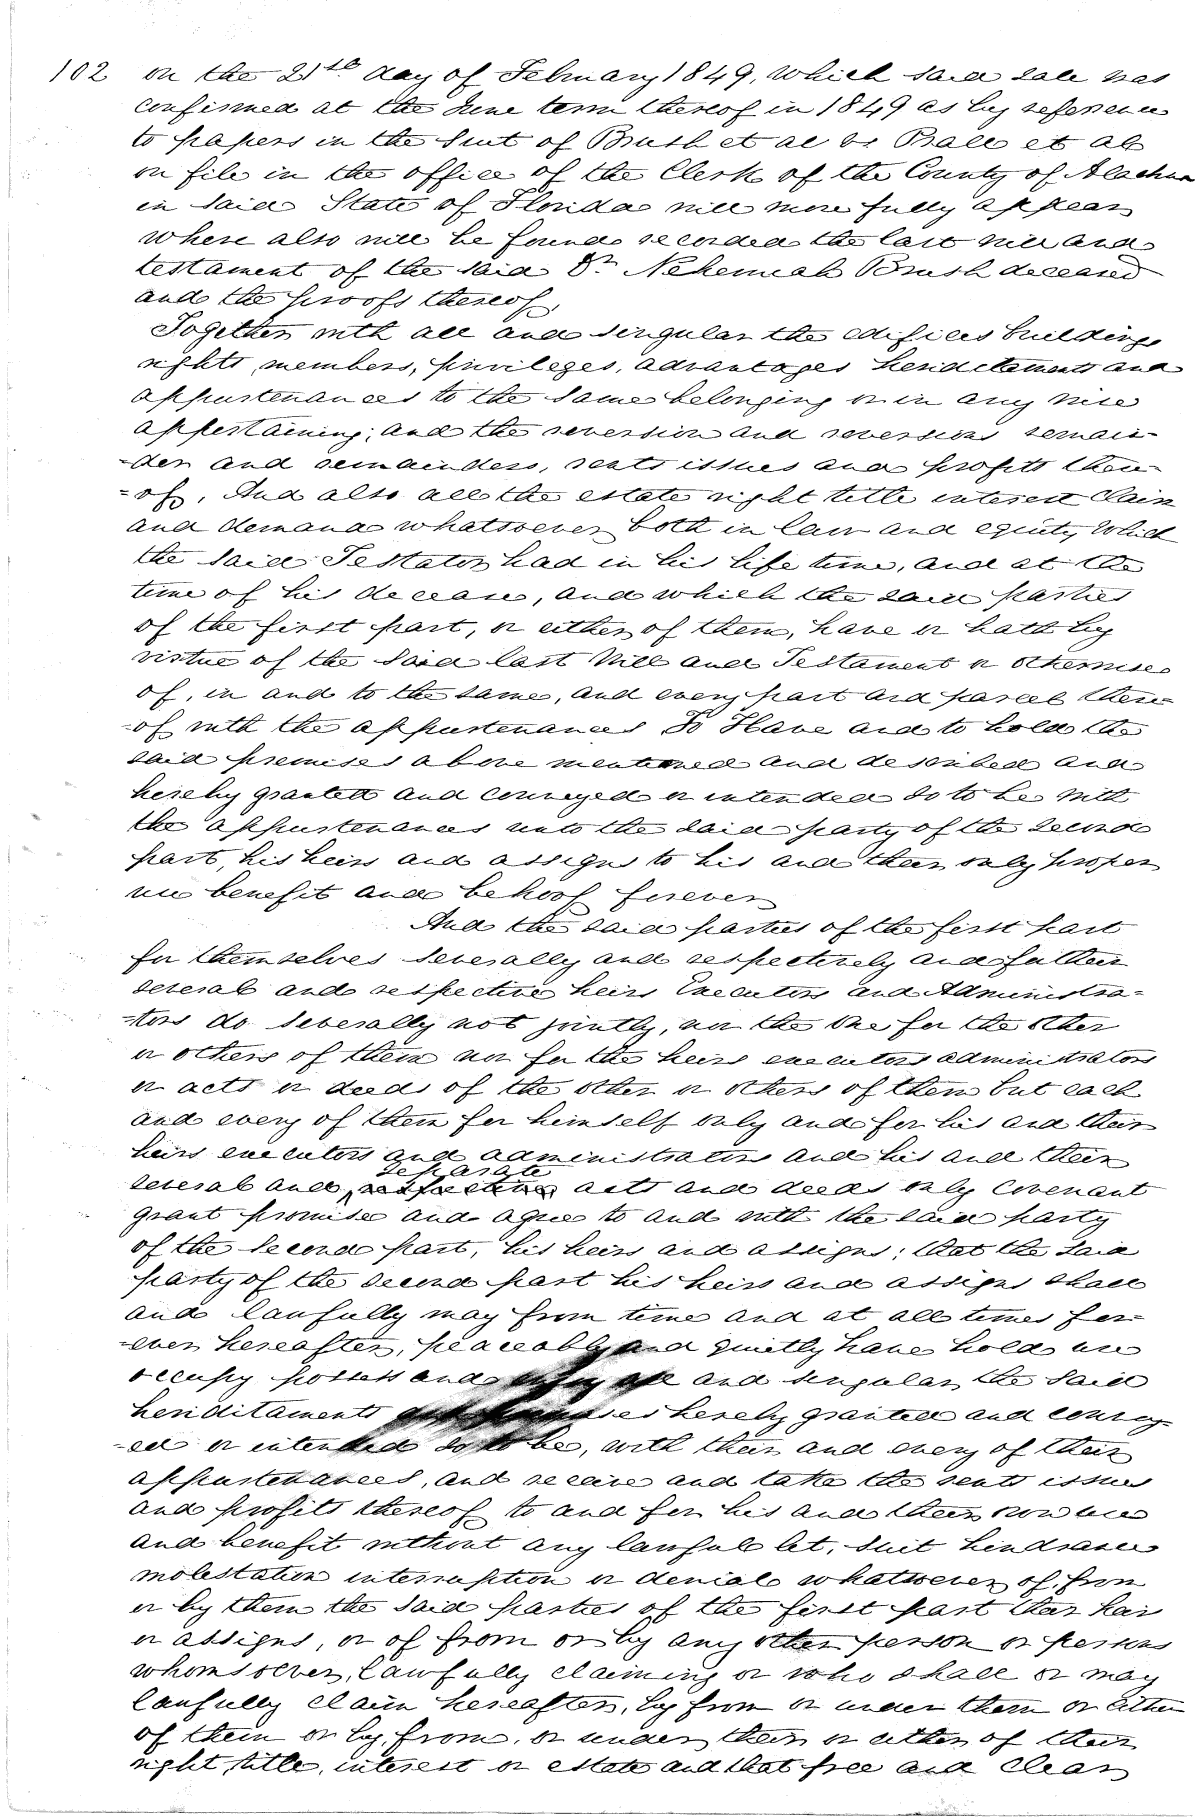 102 on the 21st day of February 1849, which said sale was
confirmed at the June term thereof in 1849 as by reference
to papers in the Suit of Brush et al vs Ball et al
on file in the office of the Clerk of the County of Alachua
in said State of Florida will more fully appear
where also will be found recorded the last will and
testament of the said Dr Nehemiah Brush deceased
and the proofs thereof.
Together with all and singular the edifices buildings
rights, members, privileges, advantages heriditaments and
appurtenances to the same belonging or in any wise
appertaining; and the reversion and reversions remain-
-der and remainders, rents issues and profits there-
=of, And also all the estate right title interest Claim
and demand whatsoever both in law and equity Which
the said Testator had in his life time, and at the
time of his decease, and which the said parties
of the first part, or either of them, have or hath by
virtue of the said last Will and Testament or otherwise
of, in and to the same, and every part and parcel there-
-of with the appurtenances To Have and to hold the
said premises above mentioned and described and
hereby granted and conveyed or intended so to be with
the appurtenances unto the said party of the second
part, his heirs and assigns to his and their only proper
use benefit and behoof forever
And the said parties of the first part
for themselves severally and respectively and for their
several and respective heirs Executors and Administra-
-tors do severally not jointly, nor the one for the other
or others of them nor for the heirs executors administrators
or acts or deeds of the other or others of them but each
and every of them for himself only and for his and their
heirs executors and administrators and his and their
separate
several and respective acts and deeds only covenant
grant promise and agree to and with the said party
of the second part, his heirs and assigns; that the said
party of the second part his heirs and assigns shall
and lawfully may from time and at all times for-
-ever hereafter, peaceably and quietly have hold use
occupy possess and enjoy all and singular the said
heriditaments and premises hereby granted and convey-
-ed or intended so to be, with their and every of their
appurtenances, and receive and take the rents issues
and profits thereof to and for his and their own use
and benefit without any lawful let, suit hindrance
molestation interruption or denial whatsoever of from
or by them the said parties of the first part their heirs
or assigns, or of from or by any other person or persons
whomsoever, lawfully claiming or who shall or may
lawfully claim hereafter, by from or under them or either
of them or by, from, or under their or either of their
right, title, interest or estate and that free and clear